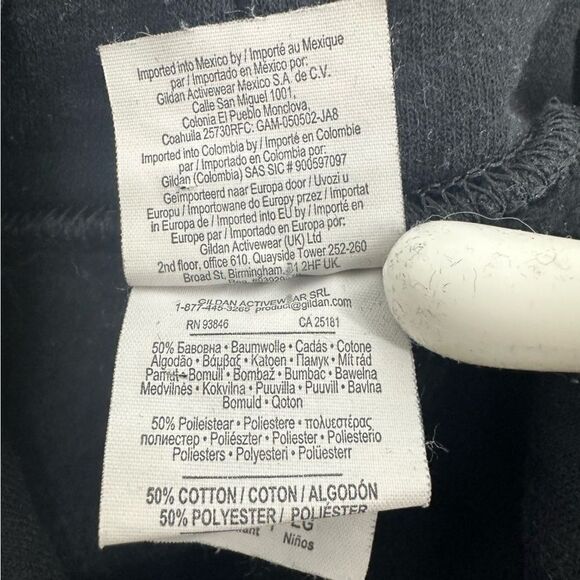 Imported into Mexico by / Importé au Mexique
par / Importado en México por:
Gildan Activewear Mexico S.A. de C.V.
Calle San Miguel 1001,
Colonia El Pueblo Monclova,
Coahuila 25730RFC: GAM-050502-JA8
Imported into Colombia by / Importé en Colombie
par / Importado en Colombia por:
Gildan (Colombia) SAS SIC # 900597097
Geïmporteerd naar Europa door / Uvozi u
Europu / Importowane do Europy przez / Importat
in Europa de / Imported into EU by / Importé en
Europe par / Importado en Europa por:
Gildan Activewear (UK) Ltd
2nd floor, office 610. Quayside Tower 252-260
Broad St, Birmingham, B1 2HF UK.
GILDAN ACTIVEWEAR SRL
1-877-445-3265 product@gildan.com
RN 93846 CA 25181
50% Бавовна • Baumwolle • Cadás • Cotone
Algodão • Βάμβαξ • Katoen • Памук • Mít rád
Pamut • Bomull • Bombaž • Bumbac • Bawełna
Medvilnės • Kokvilna • Puuvilla • Puuvill • Bavlna
Bomuld • Qoton
50% Poileistear • Poliestere • πολυεστέρας
полиестер • Poliészter • Poliester • Poliesterio
Poliesters • Polyesteri • Polüesterr
50% COTTON / COTON / ALGODÓN
50% POLYESTER / POLIÉSTER
LG
Niños